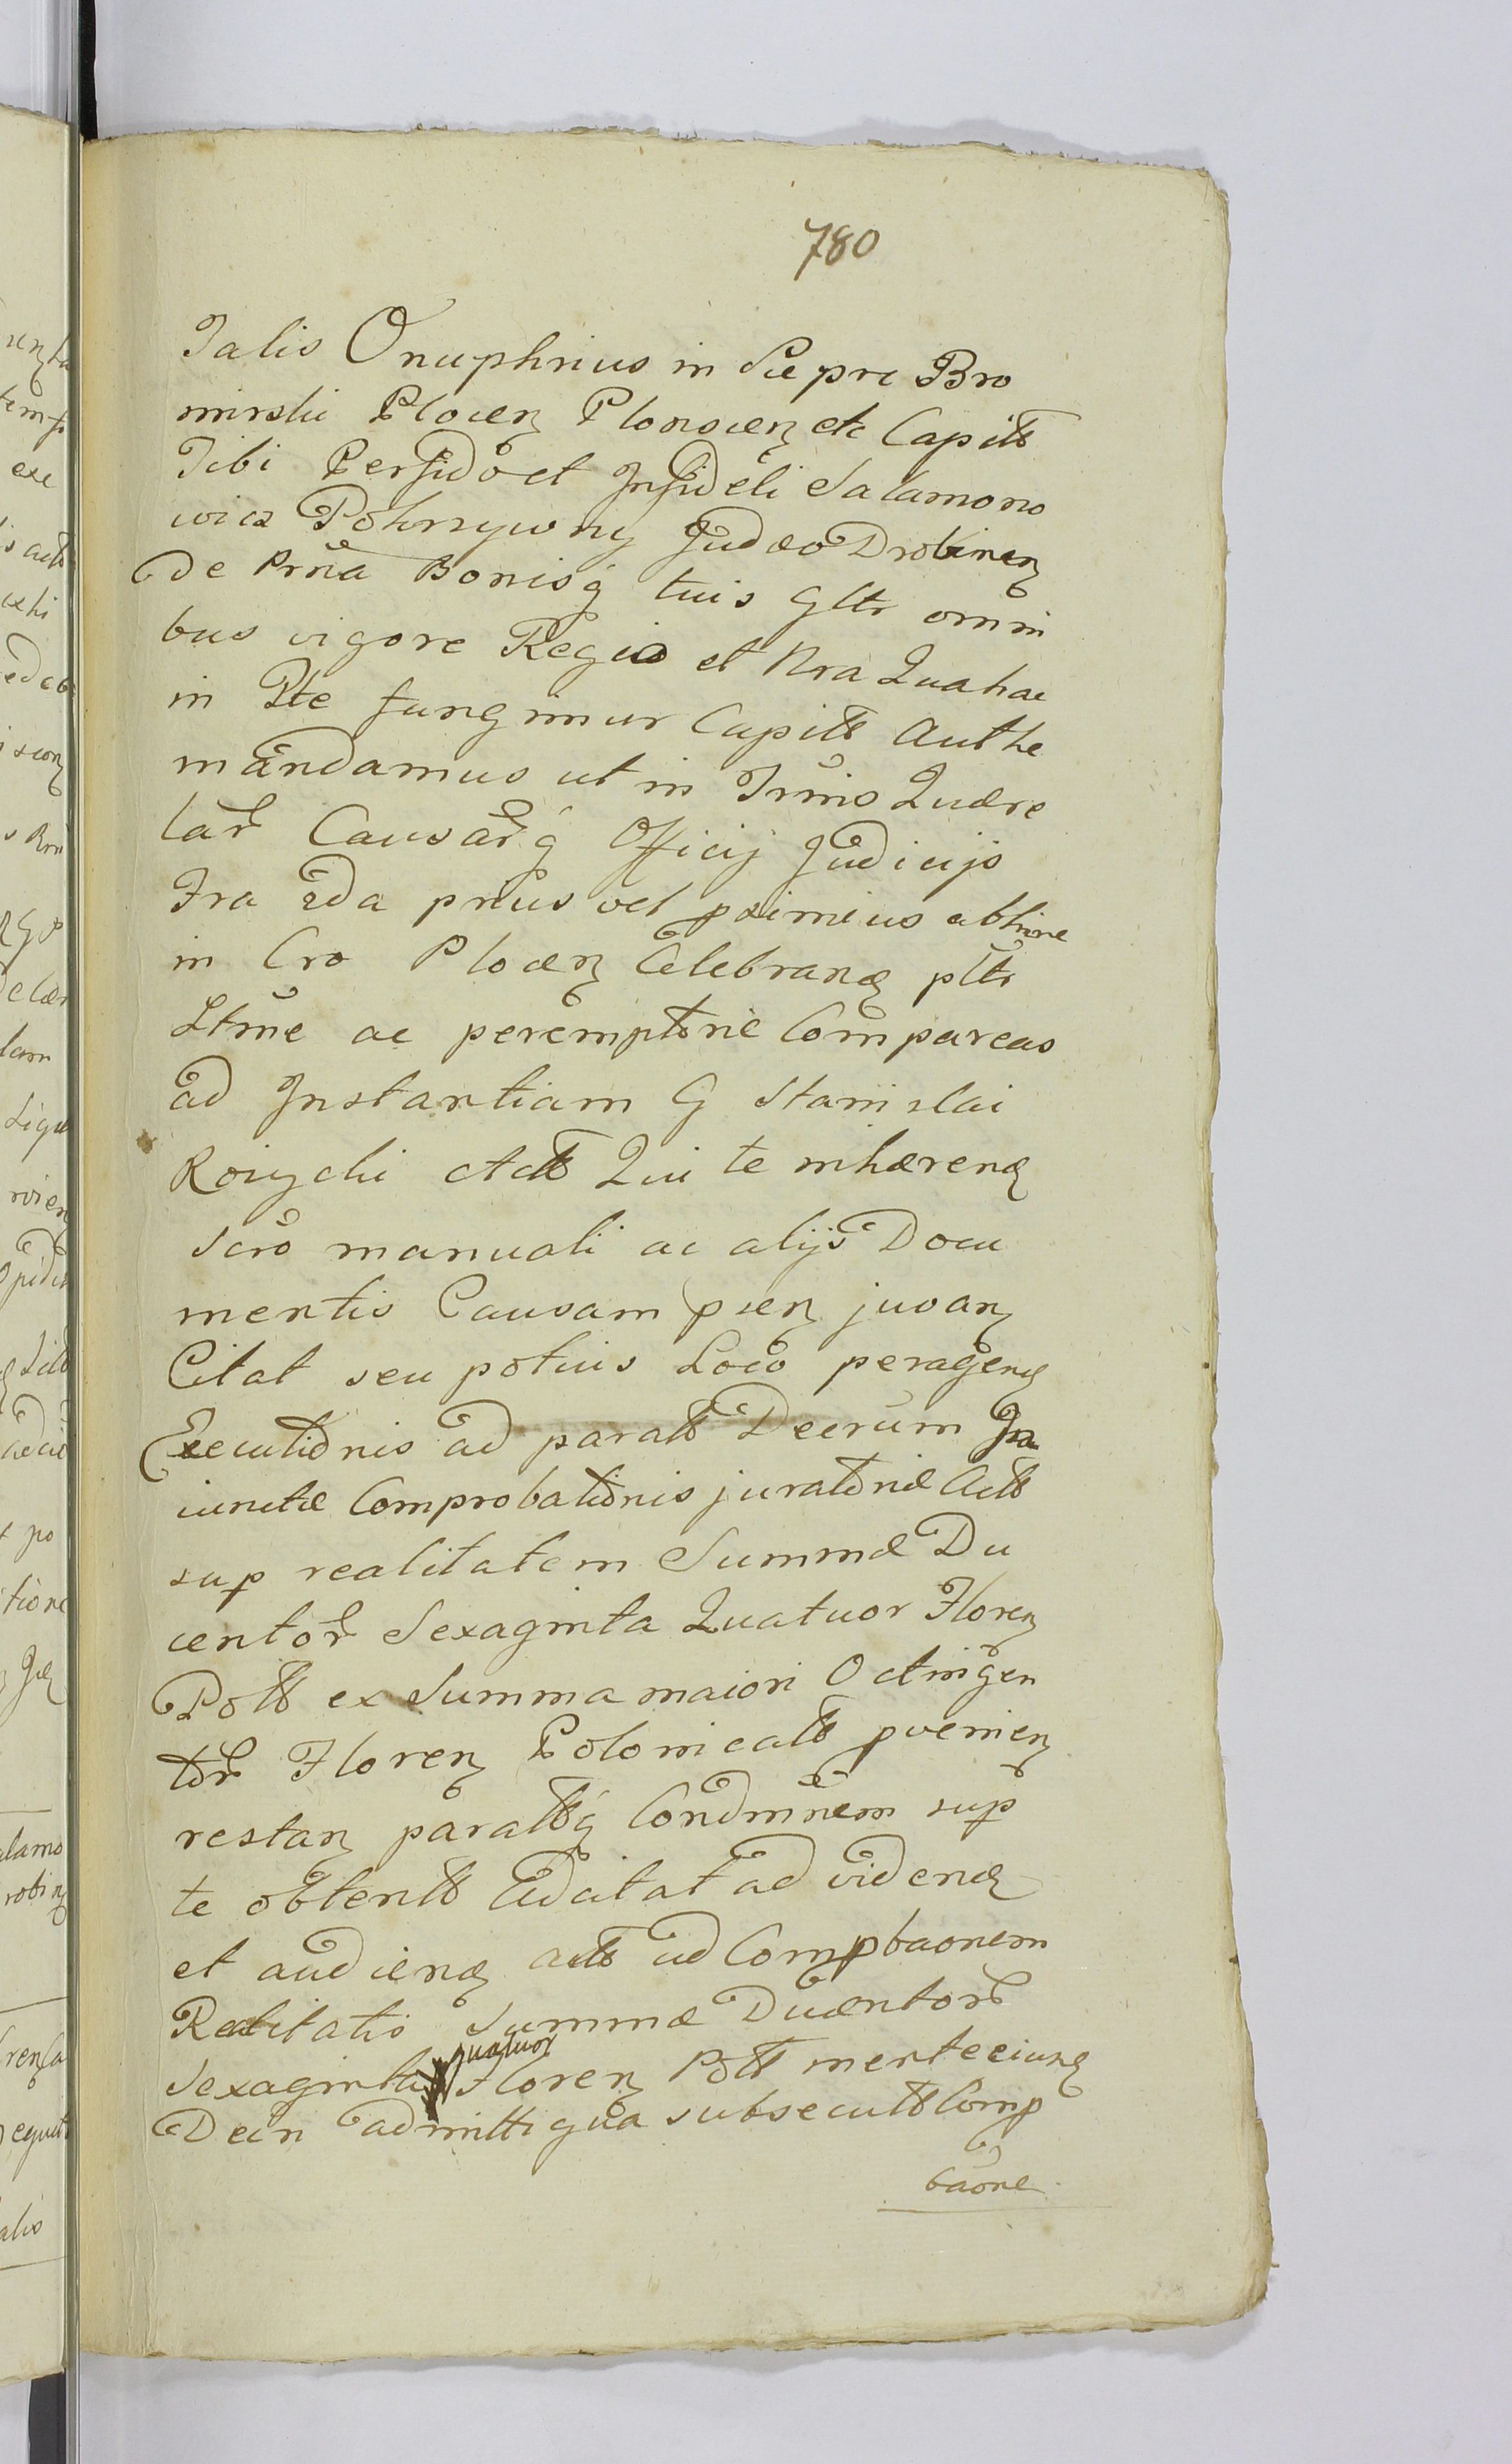 780
Talis Onuphrius in Siepre Bro
mirski Plocen Plonscen etc Capitt
Tibi Perfido et Infideli Salamono
wicz Pokrzywny Judæo Drobinen
de Prna Bonisq tuis Gltr omni
bus vigore Regia et Nra Qua hac
in Pte fungimur Capitt Authe
mandamus ut in Trmis Quære
lar Causarq Officij Judicijs
Fra 2da prius vel pximius abhinc
in Cro Plocen Celebrand pltr
Ltme ac peremptorie Compareas
ad Instantiam G Stanislai
Roiycki Actt Qui te inhærend
Scro manuali ac alijs Docu
mentis Causam psen juvan
Citat seu potius Loco peragend
Executionis ad paratt Decrum In
iunctæ Comprobationis juratoriæ Actt
sup realitatem Summæ Du
centor Sexaginta Quatuor Floren
Poltt ex Summa maiori Octingen
tor Floren Polonicatt pvenien
restan parattq Condmnem sup
te obtentt Adcitat ad vidend
et audiend actt ad Compbaonem
Realitatis Summæ Ducentor
Sexaginta quatuor Floren Poltt mente eiusd
Decri admitti qua subsecutt Comp
baone